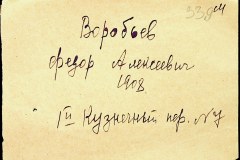 Воробьев
федор Алексеевич
1908
1й Кузнечный пер. N7